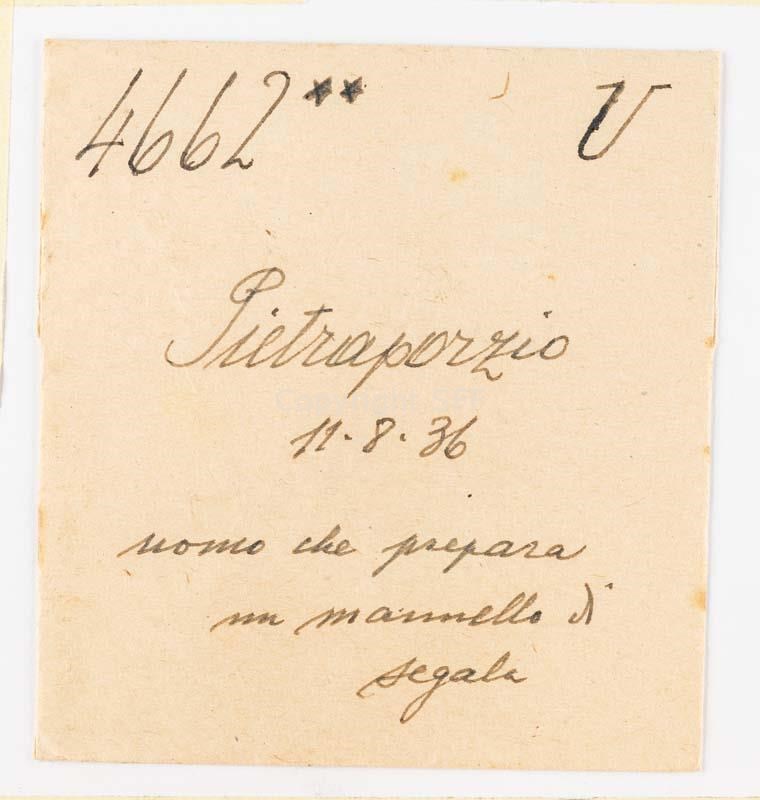 4662** U
Pietraporzio
11-8-36
uomo che prepara
un mannello di
segala